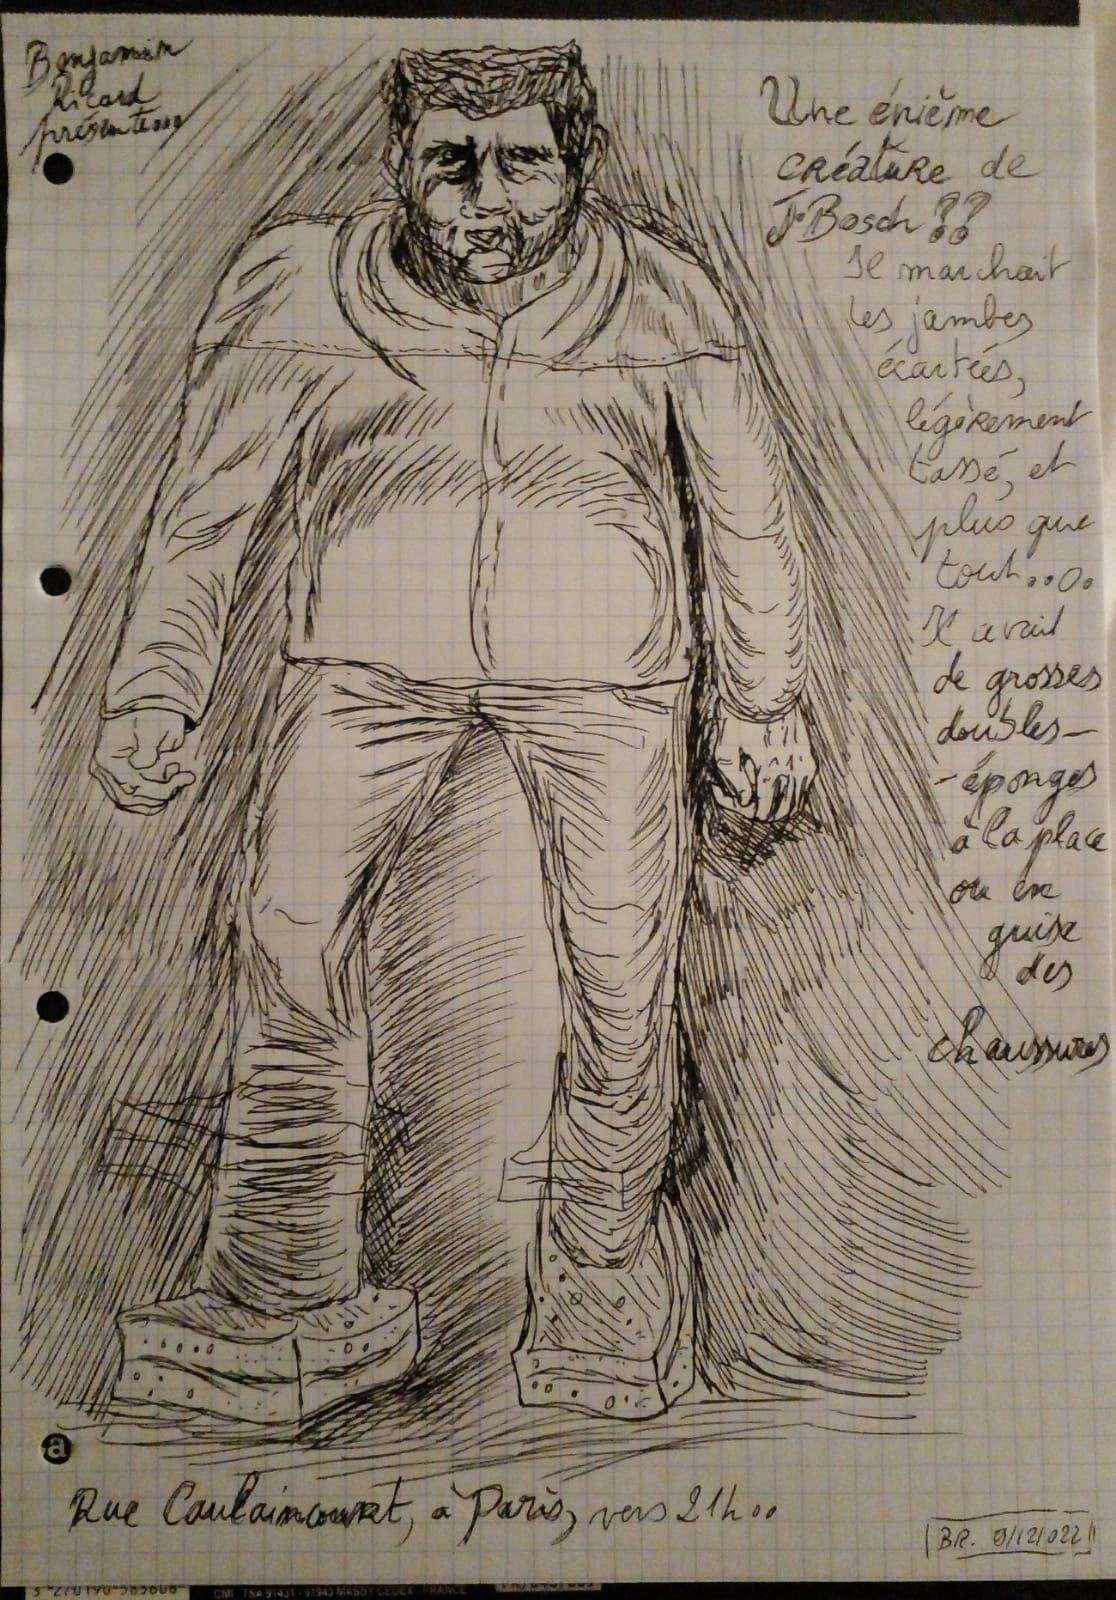 Benjamin
Ricard
présente...
Une énième
créature de
J. Bosch ??
Il marchait
les jambes
écartées,
légèrement
tassé, et
plus que
tout....
Il avait
de grosses
doubles-
-éponges
à la place
ou en
guise
des
chaussures
a
Rue Caulaincourt, à Paris, vers 21h..
BR. 9/12/022
3 270190 585608
CMI TSA 91431 - 91943 MASSY CEDEX FRANCE